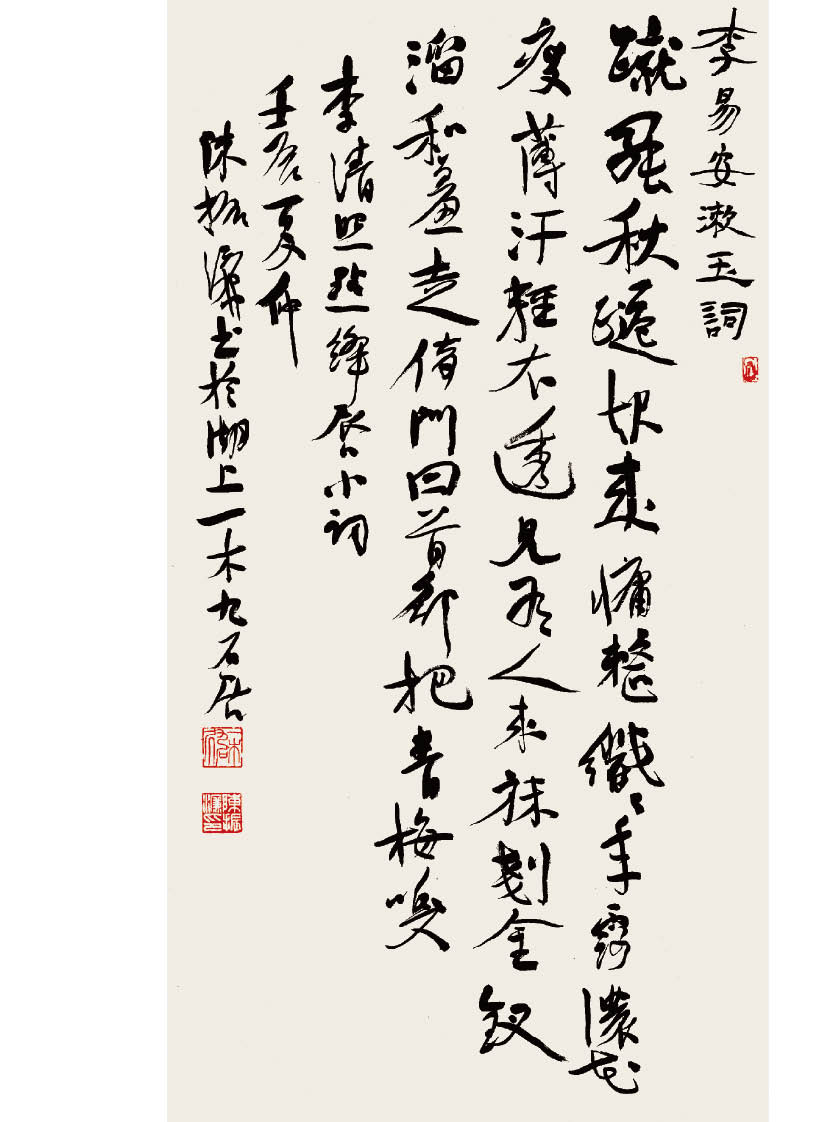 李易安漱玉詞
蹴罷秋韆起來慵整纖纖手露濃花
瘦薄汗輕衣透見有人來袜剗金釵
溜和羞走倚門回首却把青梅嗅
李清照點絳唇小詞
壬辰夏仲
陳振濂書於湖上一木九石居
陳振濂印